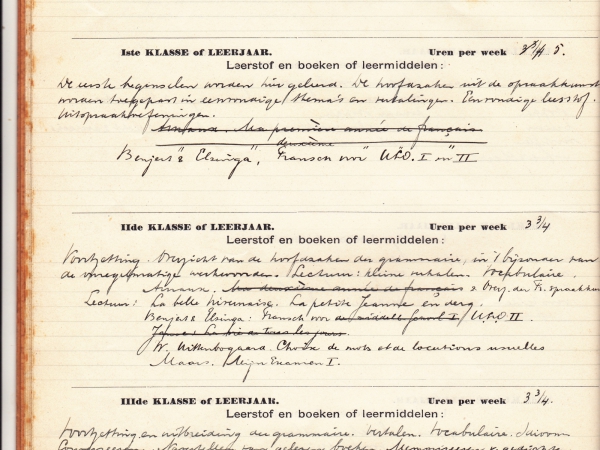 Iste KLASSE of LEERJAAR. Uren per week 3 3/4 5.
Leerstof en boeken of leermiddelen:
De eerste beginselen worden hier geleerd. De hoofdzaken uit de spraakkunst
worden toegepast in eenvoudige thema's en vertalingen. Eenvoudige leesstof.
Uitspraakoefeningen.
Ma première année de français
deuxième
Benjert & Elzinga, Fransch voor U.L.O. I en II
IIde KLASSE of LEERJAAR. Uren per week 3 3/4
Leerstof en boeken of leermiddelen:
Voortzetting. Overzicht van de hoofdzaken der grammaire, in 't bijzonder van
de onregelmatige werkwoorden. Lectuur: kleine verhalen. Vocabulaire.
Ma deuxième année de français & Overz. der Fr. spraakkunst
Lectuur: La belle Nivernaise. La petite Jeanne en derg.
Benjert & Elzinga: Fransch voor U.L.O. II
W. Uittenbogaard. Choix de mots et de locutions usuelles
Maars. Mijn Examen I.
IIIde KLASSE of LEERJAAR. Uren per week 3 3/4.
Leerstof en boeken of leermiddelen:
Voortzetting en uitbreiding der grammaire. Vertalen. Vocabulaire.
boeken. & gedichten